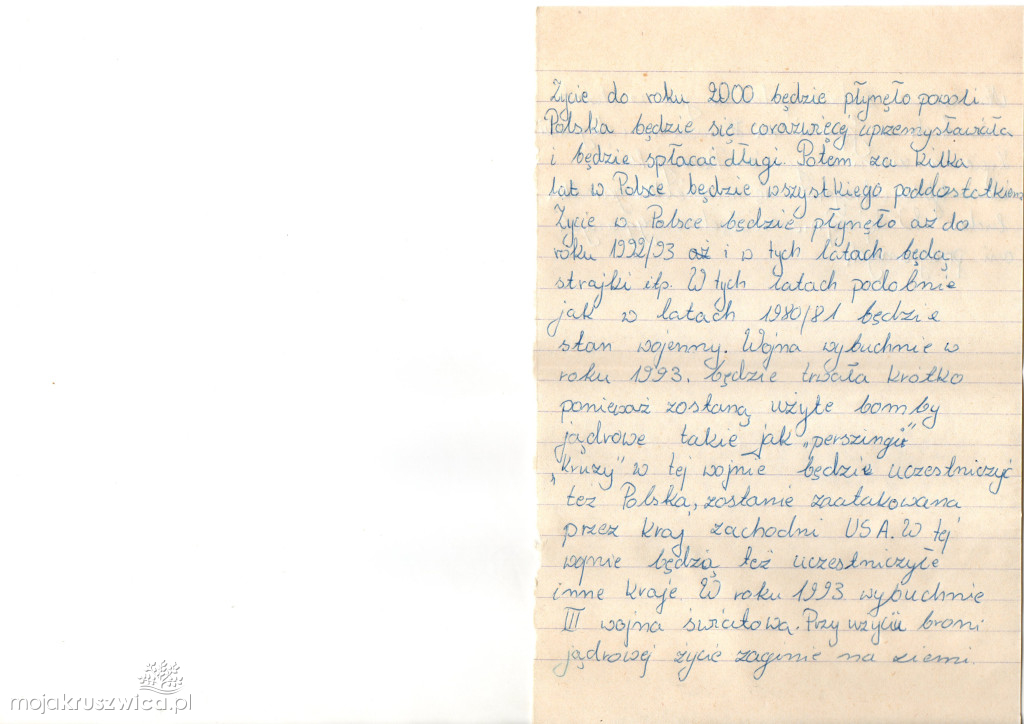 Życie do roku 2000 będzie płynęło powoli.
Polska będzie się corazwięcej uprzemysławiała
i będzie spłacać długi. Potem za kilka
lat w Polsce będzie wszystkiego poddostatkiem
Życie w Polsce będzie płynęło aż do
roku 1992/93 i w tych latach będą
strajki itp. W tych latach podobnie
jak w latach 1980/81 będzie
stan wojenny. Wojna wybuchnie w
roku 1993. będzie trwała krótko
ponieważ zostaną użyte bomby
jądrowe takie jak „perszingi"
„Kruzy" w tej wojnie będzie uczestniczyć
też Polska, zostanie zaatakowana
przez kraj zachodni USA. W tej
wojnie będzią też uczestniczyłe
inne kraje. W roku 1993 wybuchnie
III wojna światową. Przy użyciu broni
jądrowej życie zaginie na ziemi.
mojakruszwica.pl